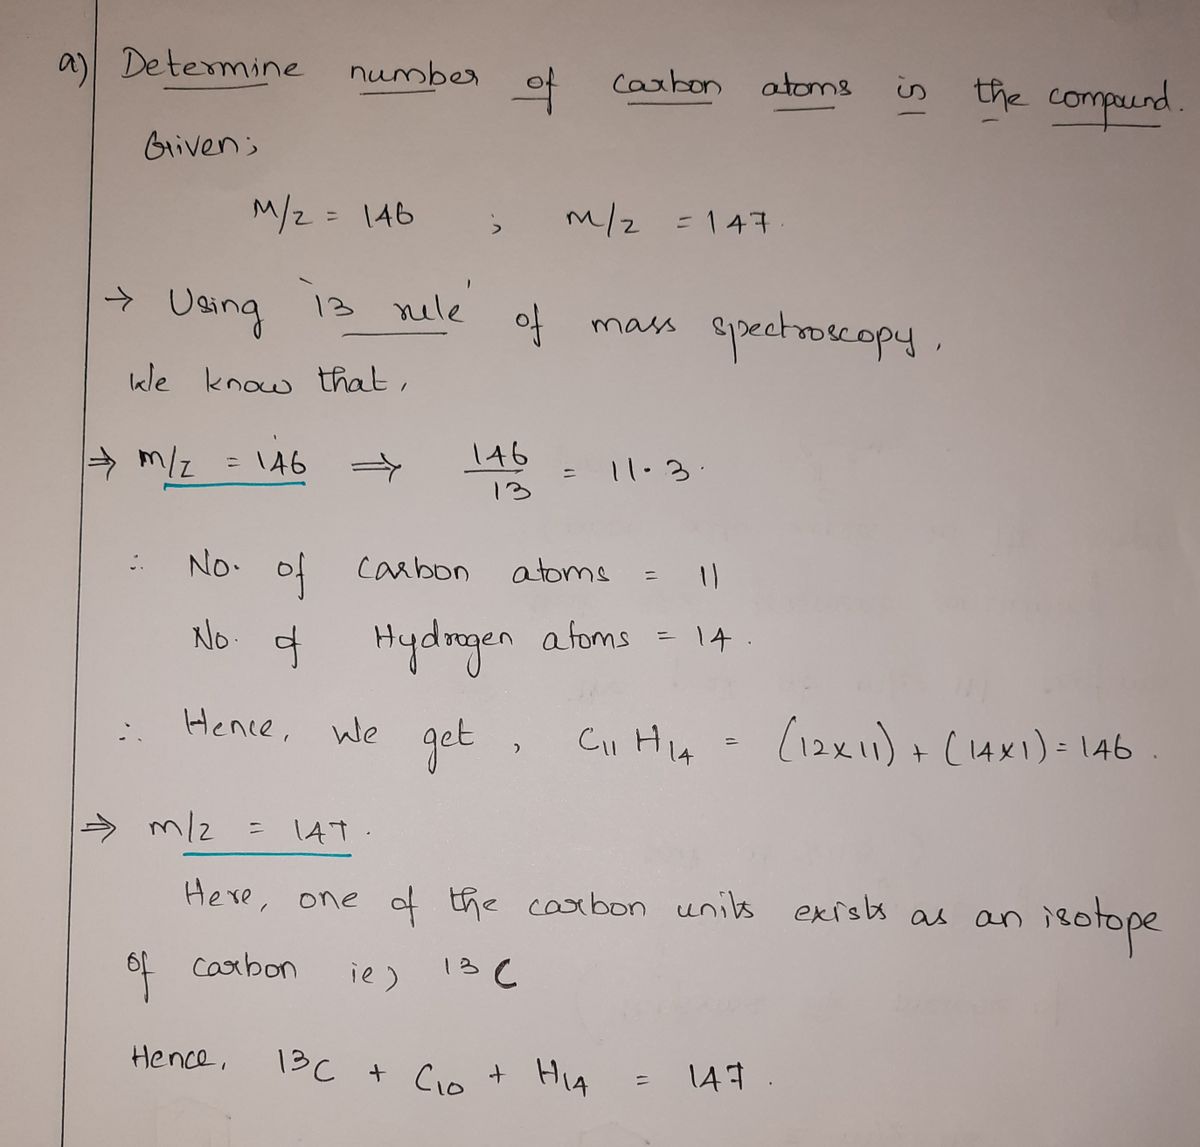 a) Determine number of carbon atoms in the compound.
Given;
M/z = 146 ; m/z = 147.
→ Using '13 rule' of mass spectroscopy,
We know that,
⇒ m/z = 146 ⇒ 146/13 = 11.3.
∴ No. of carbon atoms = 11
No. of Hydrogen atoms = 14.
∴ Hence, we get, C11 H14 = (12x11) + (14x1) = 146.
⇒ m/z = 147.
Here, one of the carbon units exists as an isotope
of carbon ie) 13C
Hence, 13C + C10 + H14 = 147.